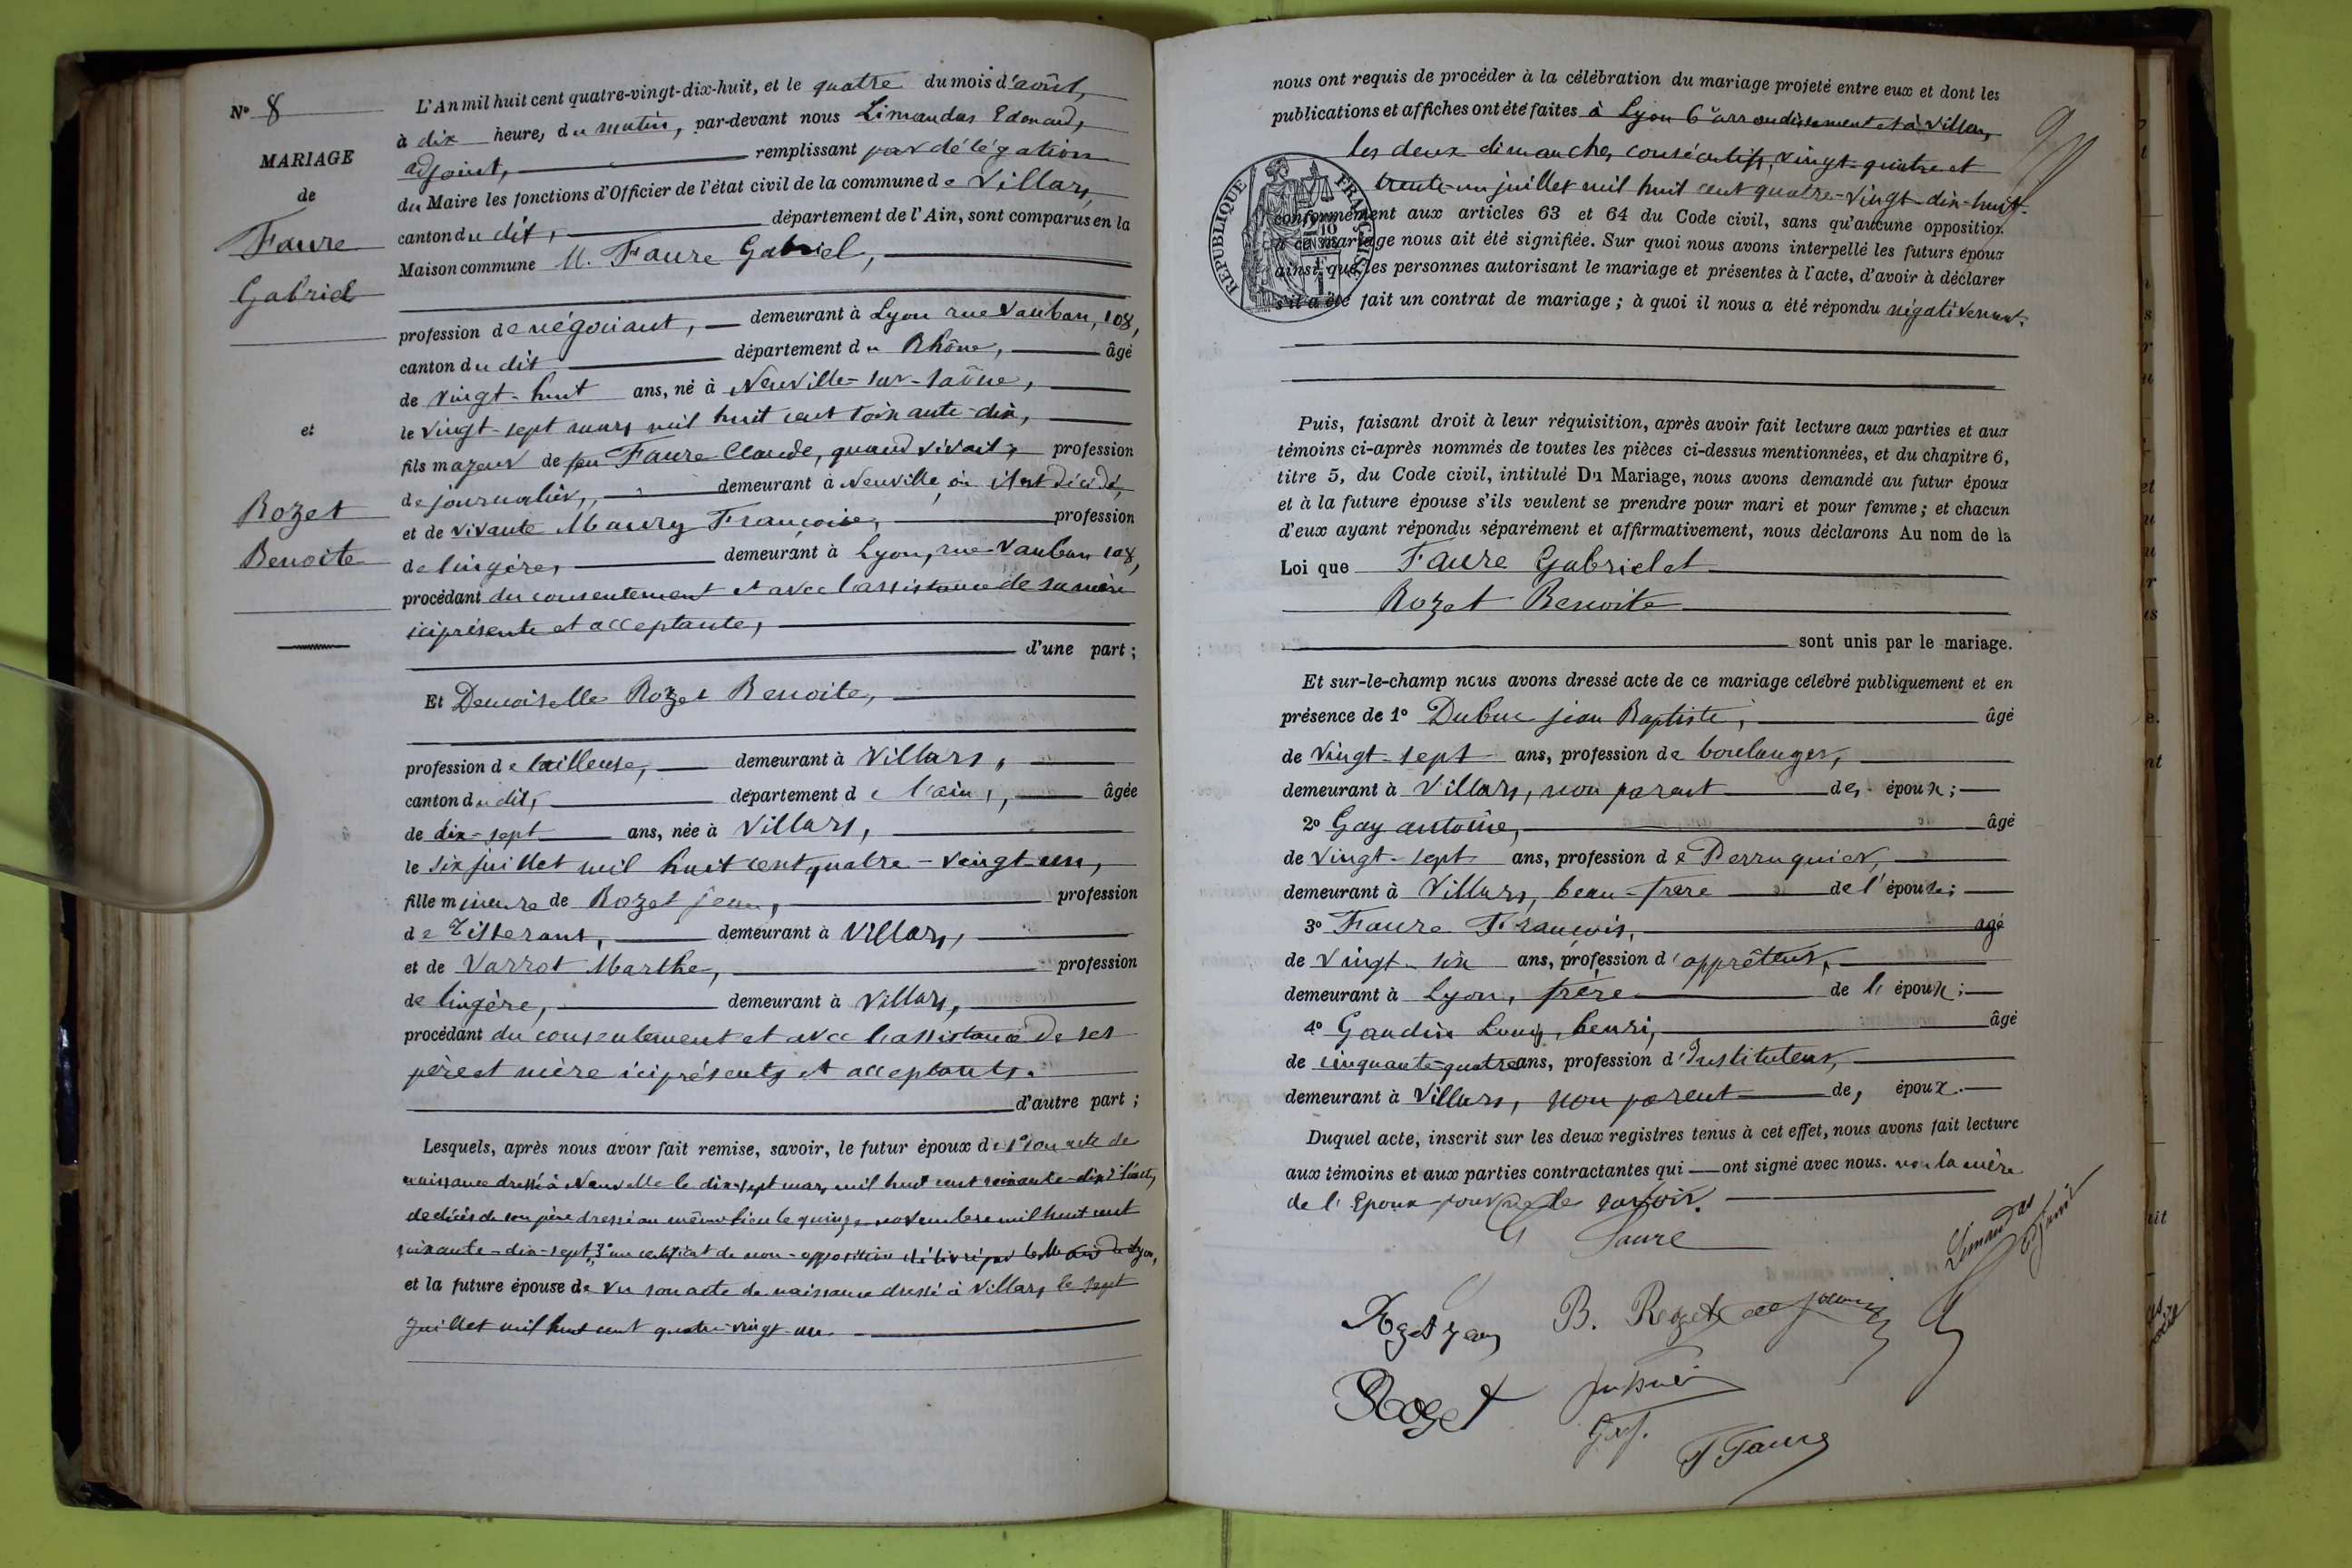 N° 8
MARIAGE
de
Faure
Gabriel
et
Rozet
Benoite
L'An mil huit cent quatre-vingt-dix-huit, et le quatre du mois d'août,
à dix heures du matin, par-devant nous Limandas Edouard,
adjoint, remplissant par délégation
du Maire les fonctions d'Officier de l'état civil de la commune de Villars,
canton du dit, département de l'Ain, sont comparus en la
Maison commune M. Faure Gabriel,
profession de négociant, demeurant à Lyon rue Vauban, 108,
canton du dit département du Rhône, âgé
de vingt-huit ans, né à Neuville-sur-Saône,
le vingt-sept mars mil huit cent soixante-dix,
fils majeur de feu Faure Claude, quand vivait, profession
de journalier, demeurant à Neuville où il est décédé,
et de vivante Maury Françoise, profession
de lingère, demeurant à Lyon, rue Vauban 108,
procédant du consentement et avec l'assistance de sa mère
ici présente et acceptante,
d'une part ;
Et Demoiselle Rozet Benoite,
profession de tailleuse, demeurant à Villars,
canton du dit, département de l'Ain, âgée
de dix-sept ans, née à Villars,
le six juillet mil huit cent quatre-vingt un,
fille mineure de Rozet Jean, profession
de Tisserant, demeurant à Villars,
et de Varrot Marthe, profession
de lingère, demeurant à Villars,
procédant du consentement et avec l'assistance de ses
père et mère ici présents et acceptants.
d'autre part ;
Lesquels, après nous avoir fait remise, savoir, le futur époux de 1° son acte de
naissance dressé à Neuville le dix-sept mars mil huit cent soixante-dix 2°
de décès de son père dressé au même lieu le quinze novembre mil huit cent
soixante-dix-sept, 3° un certificat de non-opposition délivré par le Maire de Lyon,
et la future épouse de Vu son acte de naissance dressé à Villars, le sept
Juillet mil huit cent quatre-vingt-un
nous ont requis de procéder à la célébration du mariage projeté entre eux et dont les
publications et affiches ont été faites à Lyon 6e arrondissement et à Villars,
les deux dimanches consécutifs, vingt-quatre et
trente-un juillet mil huit cent quatre-vingt-dix-huit.
RÉPUBLIQUE FRANÇAISE
conformément aux articles 63 et 64 du Code civil, sans qu'aucune opposition
à ce mariage nous ait été signifiée. Sur quoi nous avons interpellé les futurs époux
ainsi que les personnes autorisant le mariage et présentes à l'acte, d'avoir à déclarer
s'il a été fait un contrat de mariage ; à quoi il nous a été répondu négativement.
Puis, faisant droit à leur réquisition, après avoir fait lecture aux parties et aux
témoins ci-après nommés de toutes les pièces ci-dessus mentionnées, et du chapitre 6,
titre 5, du Code civil, intitulé Du Mariage, nous avons demandé au futur époux
et à la future épouse s'ils veulent se prendre pour mari et pour femme ; et chacun
d'eux ayant répondu séparément et affirmativement, nous déclarons Au nom de la
Loi que Faure Gabriel et
Rozet Benoite
sont unis par le mariage.
Et sur-le-champ nous avons dressé acte de ce mariage célébré publiquement et en
présence de 1° Dubuc Jean Baptiste, âgé
de vingt-sept ans, profession de boulanger,
demeurant à Villars, non parent des époux ;
2° Gay antoine, âgé
de vingt-sept ans, profession de Perruquier,
demeurant à Villars, beau-frère de l'épouse ;
3° Faure François, agé
de vingt-six ans, profession d'apprêteur,
demeurant à Lyon, frère de l'époux ;
4° Gaudin Louis, henri, âgé
de cinquante-quatre ans, profession d'Instituteur,
demeurant à Villars, non parent des époux.
Duquel acte, inscrit sur les deux registres tenus à cet effet, nous avons fait lecture
aux témoins et aux parties contractantes qui ont signé avec nous. non la mère
de l'Epoux pour ne le savoir.
G Faure
Limandas
Rozet Jean
B. Rozet
Rozet
Gay.
F Faure